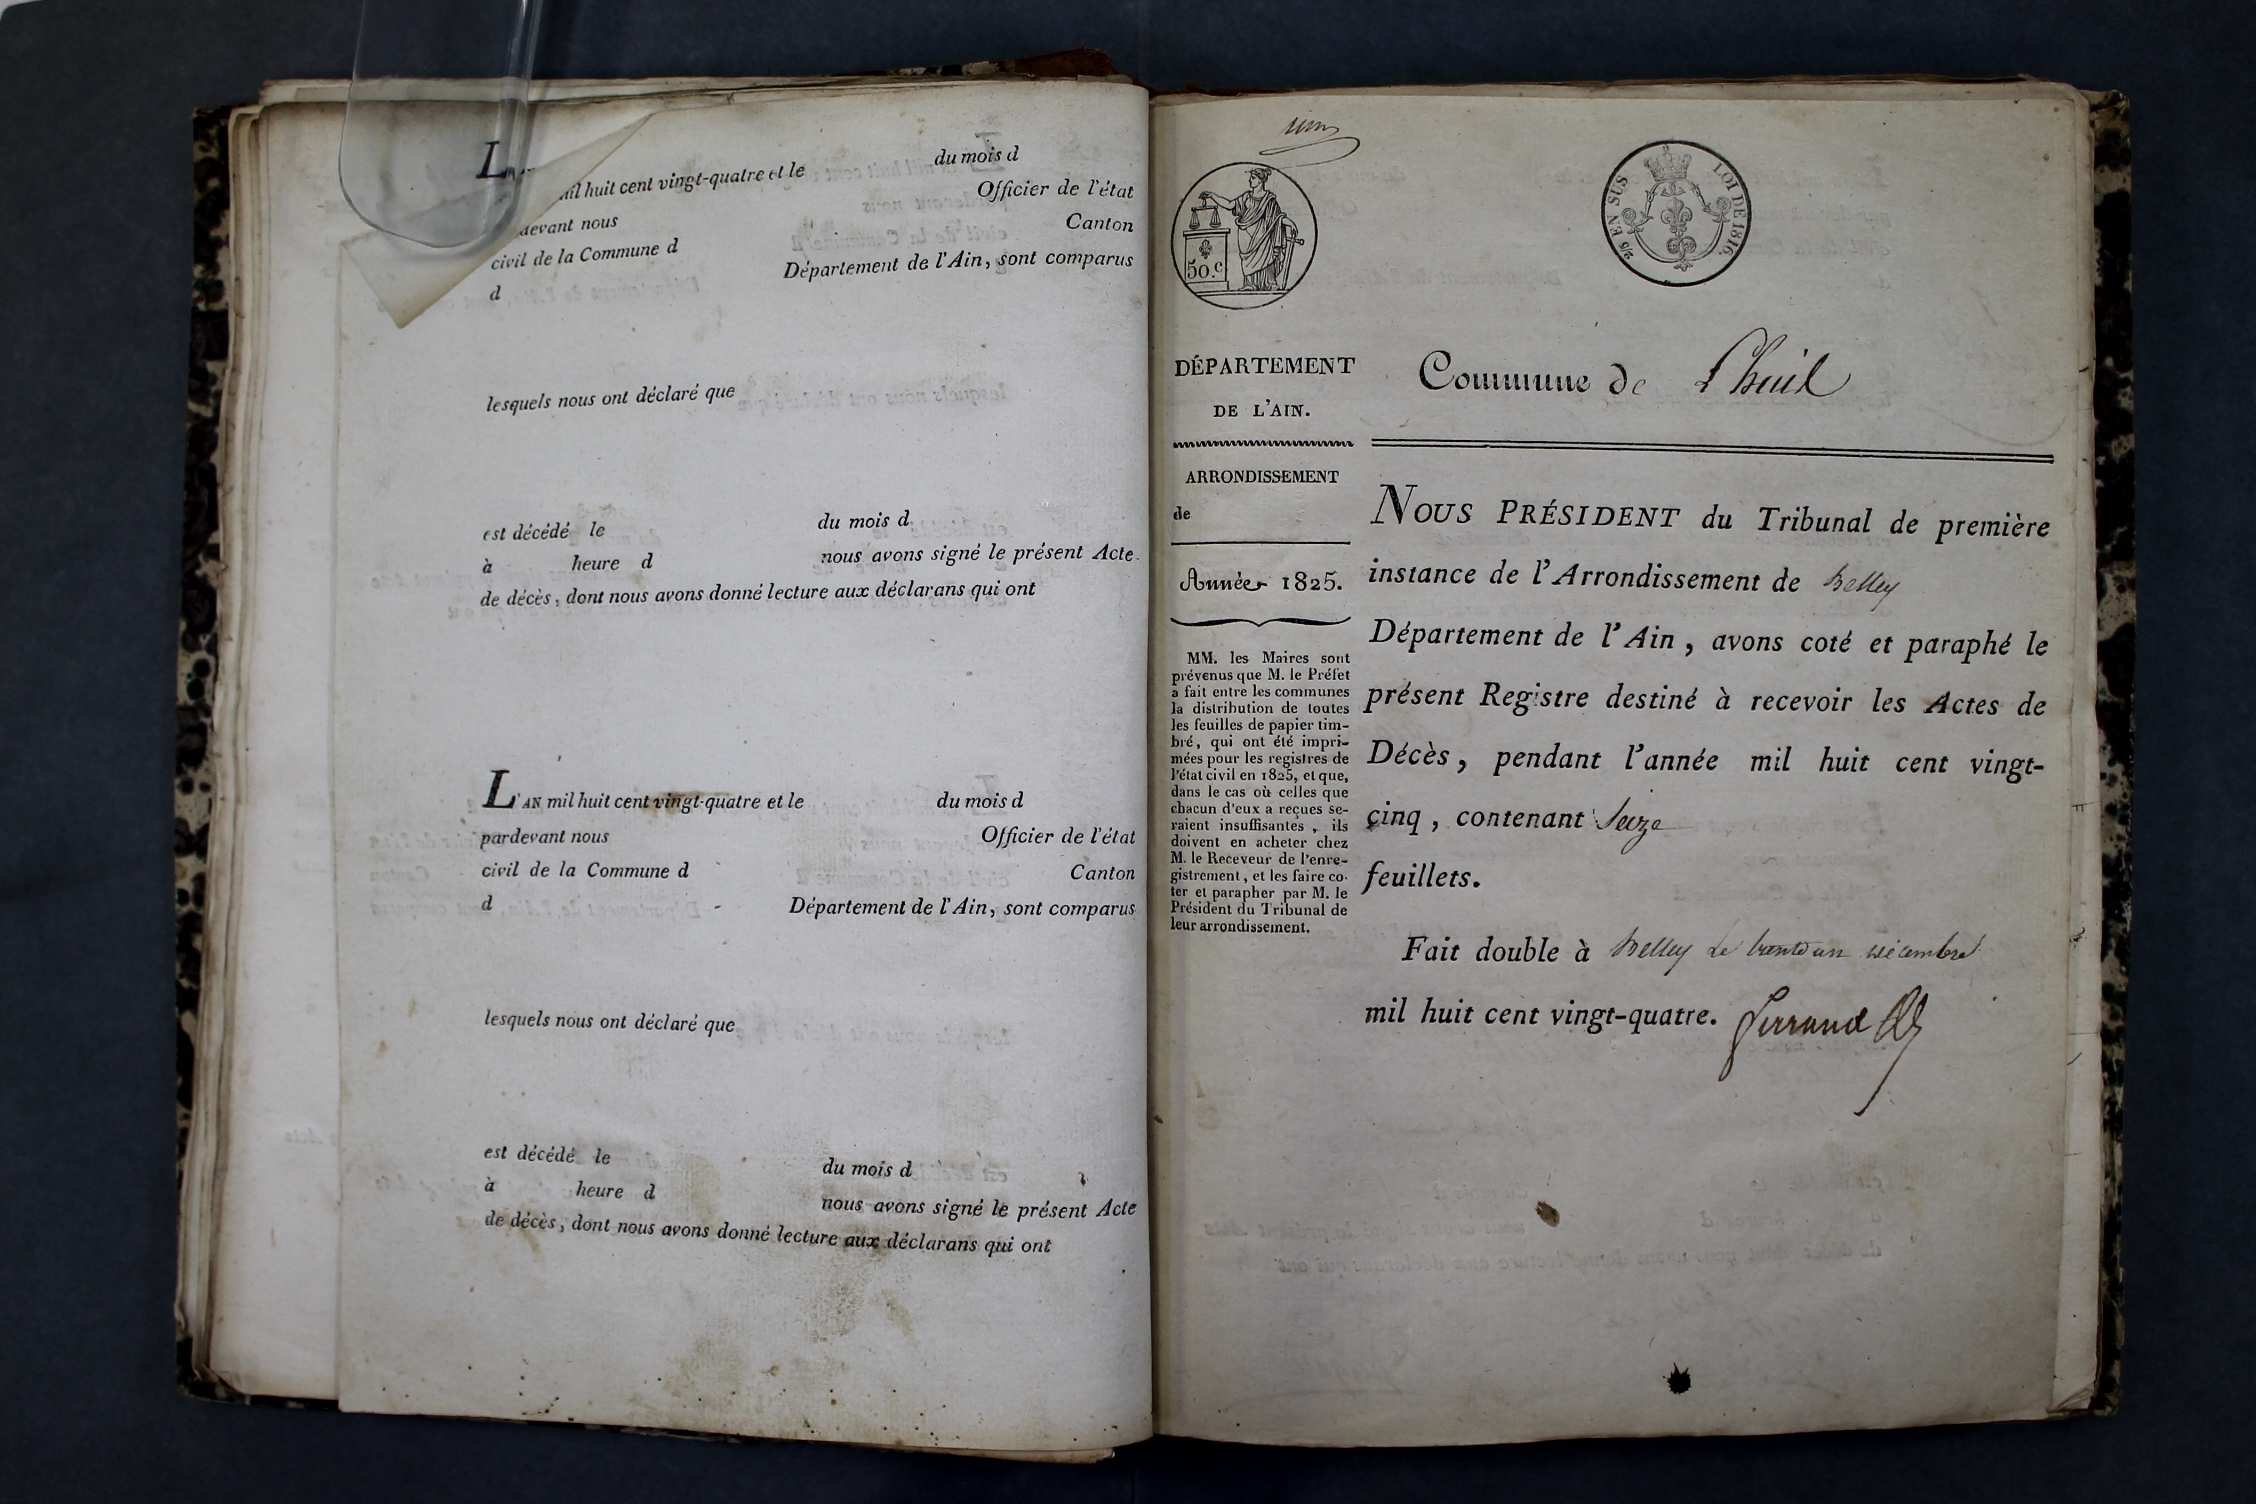 du mois d
mil huit cent vingt-quatre et le
Officier de l'état
devant nous
Canton
civil de la Commune d
Département de l'Ain, sont comparus
d
lesquels nous ont déclaré que
est décédé le du mois d
à heure d nous avons signé le présent Acte
de décès, dont nous avons donné lecture aux déclarans qui ont
L'AN mil huit cent vingt-quatre et le du mois d
pardevant nous Officier de l'état
civil de la Commune d Canton
d Département de l'Ain, sont comparus
lesquels nous ont déclaré que
est décédé le du mois d
à heure d nous avons signé le présent Acte
de décès, dont nous avons donné lecture aux déclarans qui ont
50.c
2/5 EN SUS LOI DE 1816.
DÉPARTEMENT
DE L'AIN.
ARRONDISSEMENT
de
Année 1825.
MM. les Maires sont
prévenus que M. le Préfet
a fait entre les communes
la distribution de toutes
les feuilles de papier tim-
bré, qui ont été impri-
mées pour les registres de
l'état civil en 1825, et que,
dans le cas où celles que
chacun d'eux a reçues se-
raient insuffisantes, ils
doivent en acheter chez
M. le Receveur de l'enre-
gistrement, et les faire co-
ter et parapher par M. le
Président du Tribunal de
leur arrondissement.
Commune de Lhuil
NOUS PRÉSIDENT du Tribunal de première
instance de l'Arrondissement de Belley
Département de l'Ain, avons coté et paraphé le
présent Registre destiné à recevoir les Actes de
Décès, pendant l'année mil huit cent vingt-
çinq, contenant Seize
feuillets.
Fait double à Belley Le trente un décembre
mil huit cent vingt-quatre.